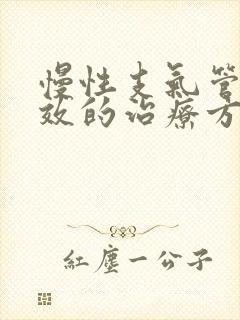 慢性支氣管
效的治療方
紅塵一公子